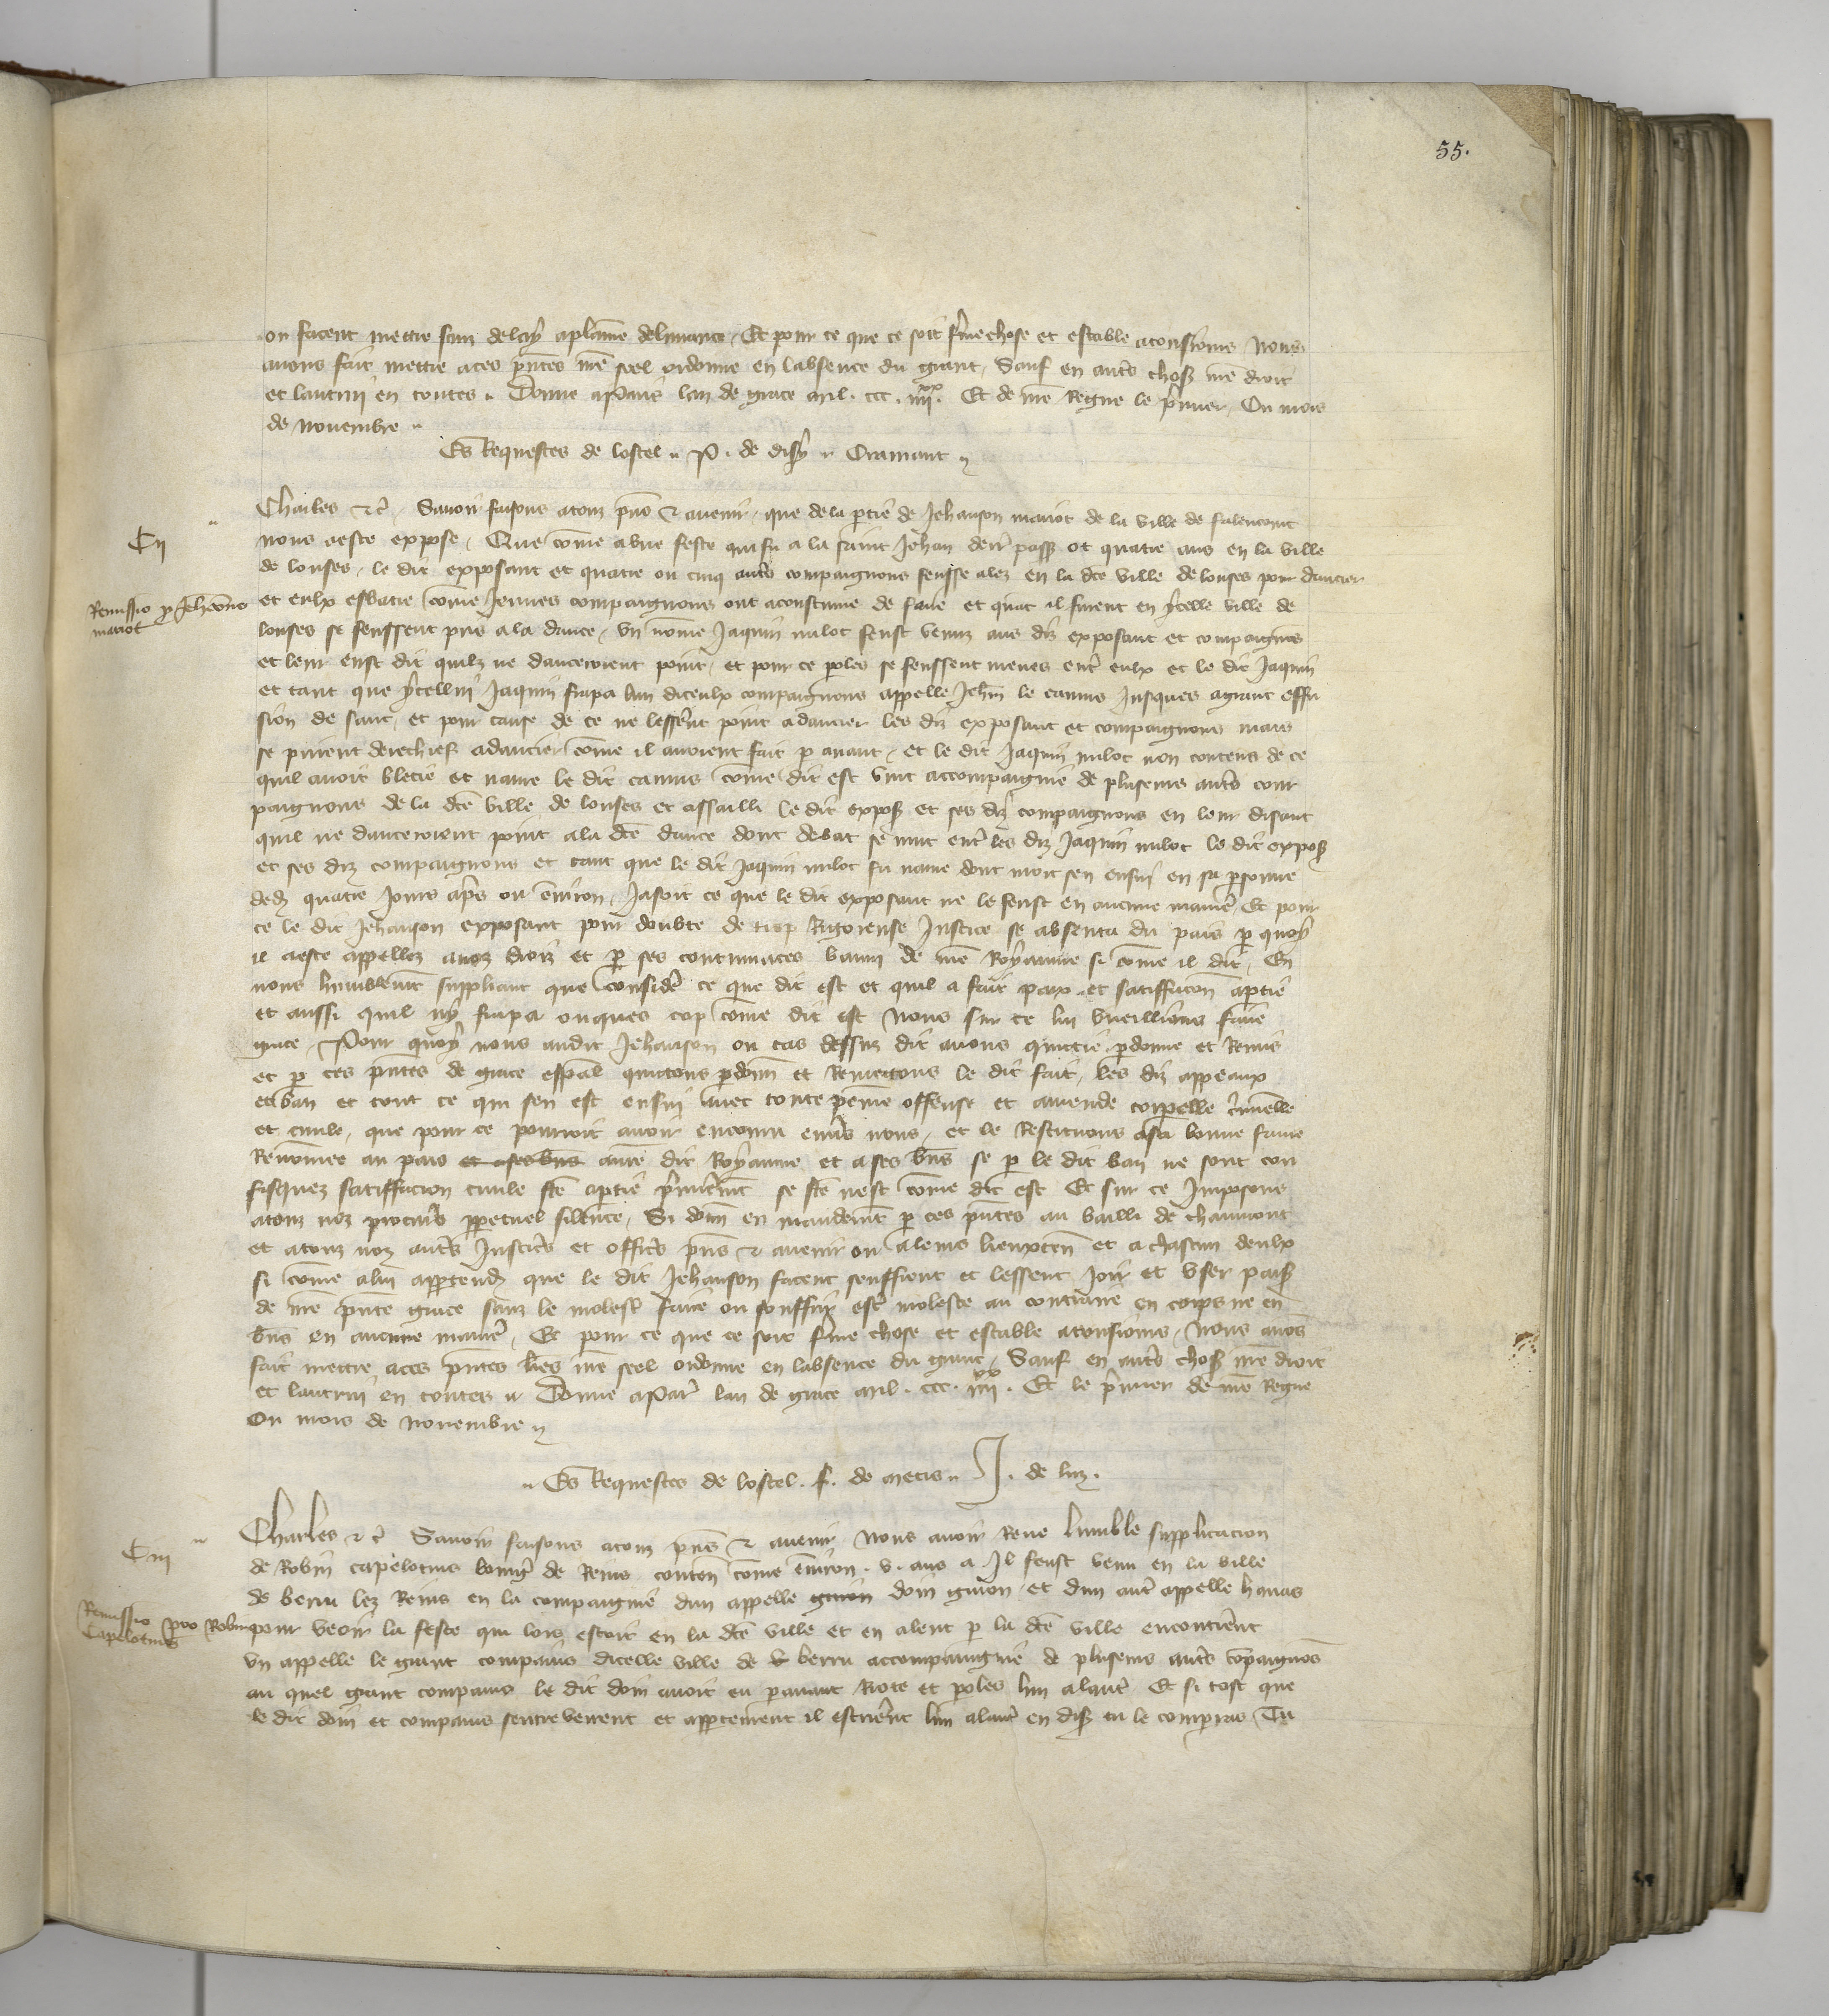 55.
ou facent mettre sanz delay a plaine delivrance. Et pour ce que ce soit ferme chose et estable a tousiours Nous
avons fait mettre a ces pntes nre seel ordonne en labsence du grant, Sauf en autres choses nre droit
et lautrui en toutes. Donne a Paris lan de grace mil. ccc. iiii xx. Et de nre Regne le premier, Ou mois
de Novembre
Es Requestes de lostel. P. de disy. Cramant
Cii
Charles etc. Savoir faisons a touz pns et avenir, que de la partie de Jehanson mariot de la ville de
nous a este expose, Que come a une feste qui fu a la saint Jehan derr passe ot quatre ans en la ville
de louses, le dit exposant et quatre ou cinq autres compaignons feusse alez en la dce ville de louses pour dancier
Remissio pro Jehanno
mariot
et eulx esbatre come Jeunes compaignons ont acoustume de faire et quant il furent en ycelle ville de
louses se feussent pris a la dance, Un nomme Jaquin milot feust venuz aus diz exposant et compaignons
et leur eust dit quilz ne danceroient point, et pour ce paroles se feussent meues entre eulx et le dit Jaquin
et tant que ycellui Jaquin frapa lun diceulx compaignons appelle Jehan le camus Jusques a grant effu
sion de sanc, et pour cause de ce ne lesserent point a dancier les diz exposant et compaignons mais
se prirent derechief a dancier come il avoient fait par avant, et le dit Jaquin milot non contens de ce
quil avoit blecie et navre le dit camus come dit est vint accompaignie de plusieurs autres com
paignons de la dce ville de louses et assailli le dit expos et ses diz compaignons en leur disant
quil ne danceroient point a la dce dance dont debat se mut entre les diz Jaquin milot le dit expos
et ses diz compaignons et tant que le dit Jaquin milot fu navre dont mort sen ensui en sa personne
dedens quatre Jours apres ou environ, Jasoit ce que le dit exposant ne le feust en aucune maniere, Et pour
ce le dit Jehanson exposant pour doubte de trop Rigoreuse Justice se absenta du pais par quoy
il a este appellez a noz droiz et par ses contumaces banni de nre Royaume si come il dit, En
nous humblement suppliant que considere ce que dit est et quil a fait paix et satiffacon a partie
et aussi quil ny frapa onques cop come dit est Nous sur ce lui vueillions faire
grace, Pour quoy nous audit Jehanson ou cas dessus dit avons quictie pardonne et Remis
et par ces pntes de grace espal quictons pardonn et Remettons le dit fait, les diz appeaux
et ban et tout ce qui sen est ensui avec toute peine offense et amende corporelle criminelle
et civile, que pour ce pourroit avoir encouru envers nous, et le Restituons a sa bonne fame
Renommee au pais et a ses biens a nre dit Royaume et a ses biens se par le dit ban ne sont con
fisquez satiffacion civile fce a partie premierement se fce nest come dit est Et sur ce Imposons
a touz noz procureurs perpetuel silence, Si donn en mandement par ces pntes au bailli de chaumont
et a touz noz autres Justiciers et officiers pns et avenir ou a leurs lieuxten et a chascun deulx
si come a lui appartendra que le dit Jehanson facent seuffrent et lessent Joir et user paisib
de nre pnte grace sanz le molester faire ou souffrir estre moleste au contraire en corps ne en
biens en aucune maniere, Et pour ce que ce soit ferme chose et estable a tousiours, Nous avons
fait mettre a ces pntes lres nre seel ordonne en labsence du grant, Sauf en autres choses nre droit
et lautrui en toutes. Donne a Paris lan de grace mil. ccc. iiii xx. Et le premier de nre Regne
Ou mois de Novembre
Es Requestes de lostel. f. de metis. J. de luz.
Ciii
Charles etc Savoir faisons a touz pns et avenir Nous avoir Receue lumble supplicacion
de Robin capelotius de Reins conten come environ. v. ans a Il feust venu en la ville
de berru lez Reins en la compaignie dun appelle guion doin guion, et dun autre appelle havas
Remissio pro Robin
Capelotius
pour veoir la feste qui lors estoit en la dce ville et en alent par la dce ville encontrerent
un appelle le grant compains dicelle ville de berru accompaingnie de plusieurs autres compaignons
au quel grant compains le dit doin avoit eu paravant Riote et paroles lun a lautre Et si tost que
le dit doin et compains sentrevirent et lun a lautre en dis tu le comparras Tu